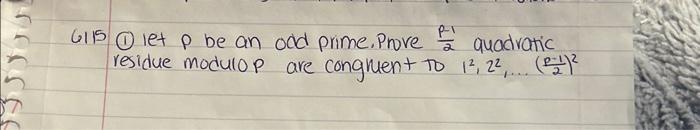 6/15 ① let p be an odd prime. Prove (p-1)/2 quadratic
residue modulo p are congruent to 1², 2², ... ((p-1)/2)²